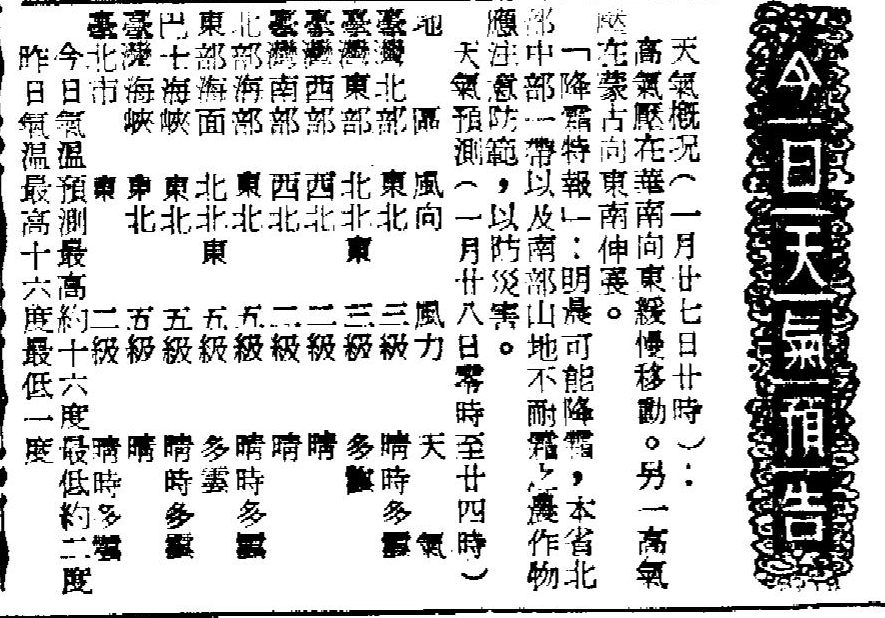 今日天氣預告
天氣概況(一月廿七日廿時):
高氣壓在華南向東緩慢移動。另一高氣
壓在蒙古向東南伸展。
「降霜特報」:明晨可能降霜,本省北
部中部一帶以及南部山地不耐霜之農作物
應注意防範,以防災害。
天氣預測(一月廿八日零時至廿四時)
地區 風向 風力 天氣
臺灣北部 東北 三級 晴時多雲
臺灣東部 北北東 三級 多雲
臺灣西部 西北 二級 晴
臺灣南部 西北 二級 晴
北部海部 東北 五級 晴時多雲
東部海面 北北東 五級 多雲
巴士海峽 東北 五級 晴時多雲
臺灣海峽 東北 五級 晴
臺北市 東 二級 晴時多雲
今日氣溫預測最高約十六度最低約二度
昨日氣溫最高十六度最低一度